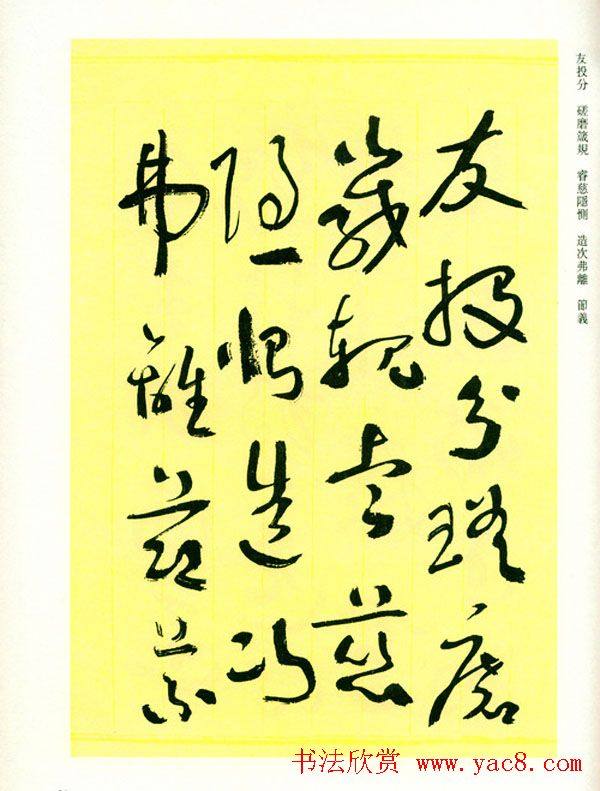 友投分 磋磨箴規 睿慈隱惻 造次弗離 節義
友投分磋磨
箴規睿慈
隱惻造次
弗離節義
书法欣赏 www.yac8.com